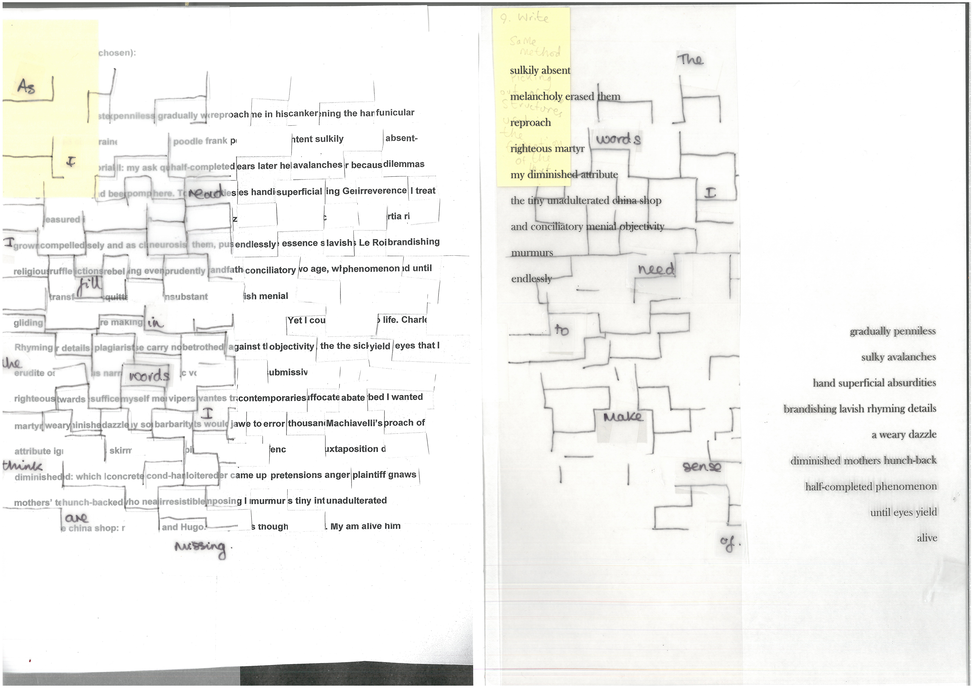 chosen):
As
penniless gradually w reproach me in his canker ning the har funicular
poodle frank p ntent sulkily absent-
I
my ask q half-completed ears later he avalanches r becaus dilemmas
d bee pomp here. T read es handi superficial ing Gei rreverence I treat
easured rtia ri
I grown compelled sely and as ci neurosis them, pus endlessly essence s lavish Le Roi brandishing
religious ruffle ictions rebel ing even prudently andfath conciliatory vo age, wl phenomenon id until
fill
transf quitu nsubstant ish menial
gliding re making in Yet I cou life. Charle
Rhyming r details plagiarist e carry no betrothed against tl objectivity the the sicl yield eyes that I
the
erudite is narr words ubmissiv
righteous twards suffice myself me vipers vantes tr contemporaries ffocate abate bed I wanted
I
martyr weary inishe dazzle y so barbarity s would awe to error thousan Machiavelli's proach of
attribute ig skirm enc uxtaposition d
think
diminished d: which concrete cond-ha loitered er came up pretensions anger plaintiff gnaws
mothers' t hunch-backed ho nea irresistible nposing I murmur s tiny int unadulterated
are
e china shop: r and Hugo. s though . My am alive him
missing.
9. Write
Some
method
The
sulkily absent
melancholy erased them
reproach
words
righteous martyr
my diminished attribute
I
the tiny unadulterated china shop
and conciliatory menial objectivity
murmurs
need
endlessly
to
Make
sense
of.
gradually penniless
sulky avalanches
hand superficial absurdities
brandishing lavish rhyming details
a weary dazzle
diminished mothers hunch-back
half-completed phenomenon
until eyes yield
alive